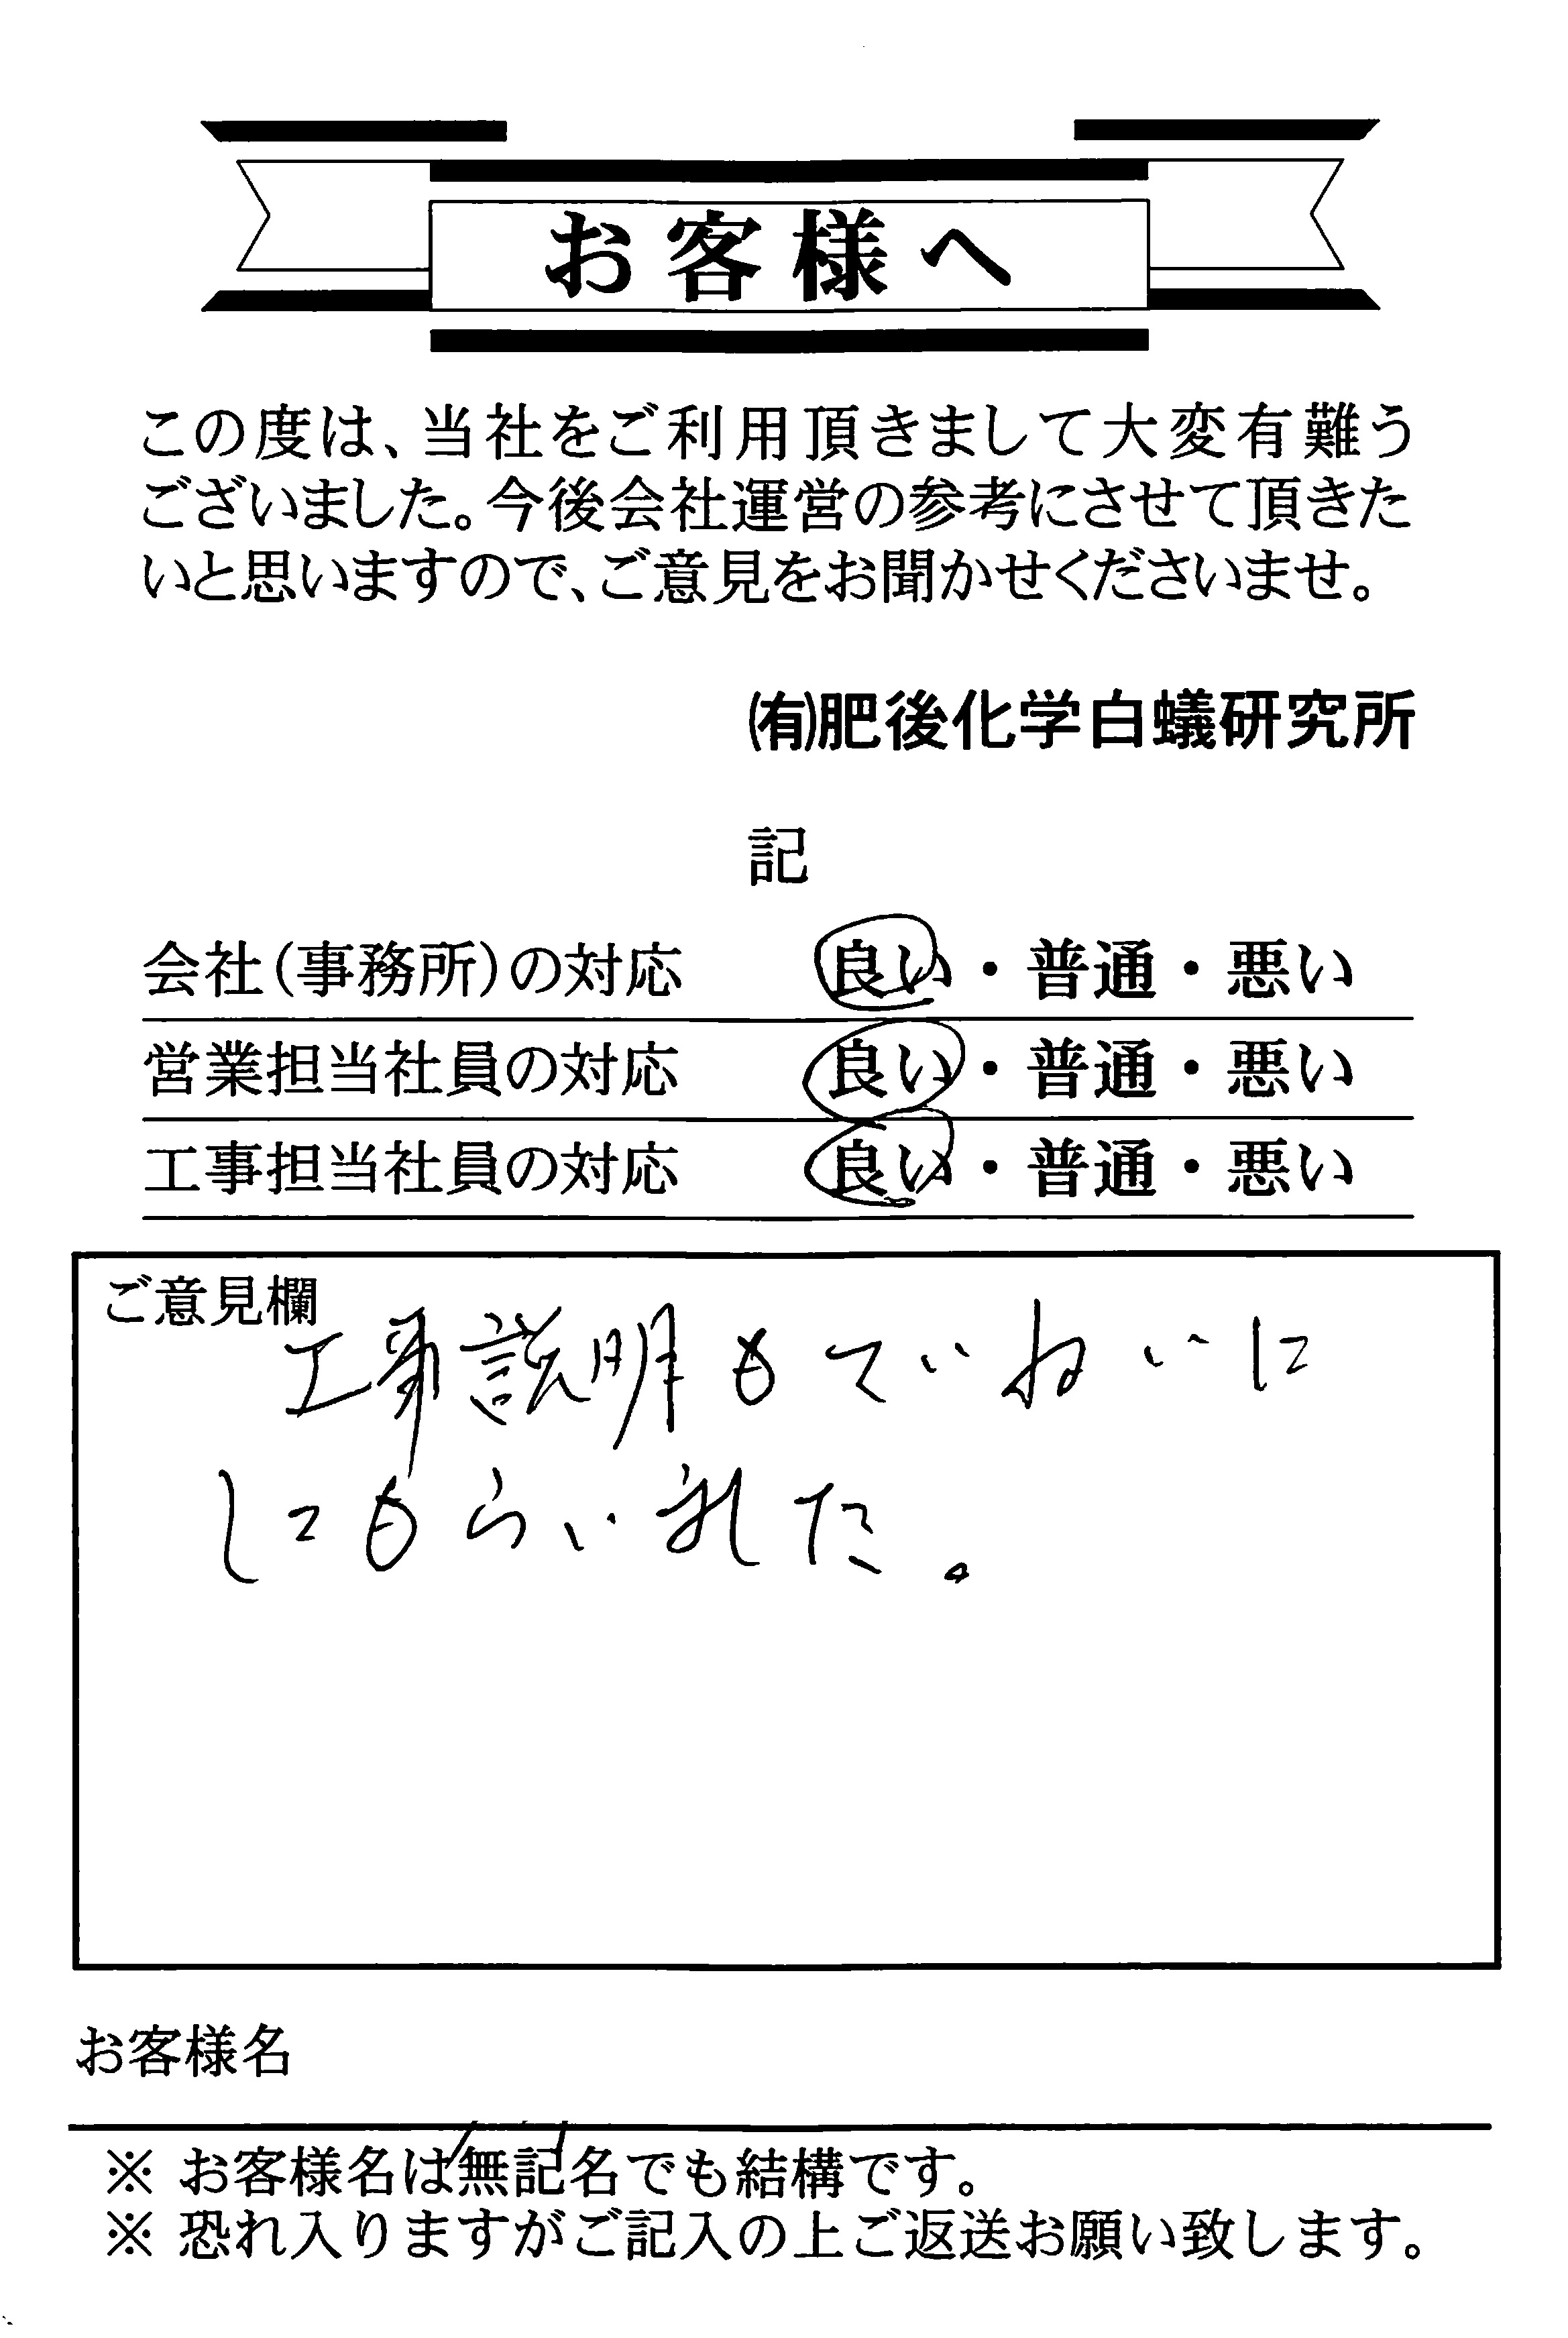 お客様へ
この度は、当社をご利用頂きまして大変有難う
ございました。今後会社運営の参考にさせて頂きた
いと思いますので、ご意見をお聞かせくださいませ。
㈲肥後化学白蟻研究所
記
会社(事務所)の対応 良い・普通・悪い
営業担当社員の対応 良い・普通・悪い
工事担当社員の対応 良い・普通・悪い
ご意見欄
工事説明もていねいに
してもらいました。
お客様名
※ お客様名は無記名でも結構です。
※ 恐れ入りますがご記入の上ご返送お願い致します。